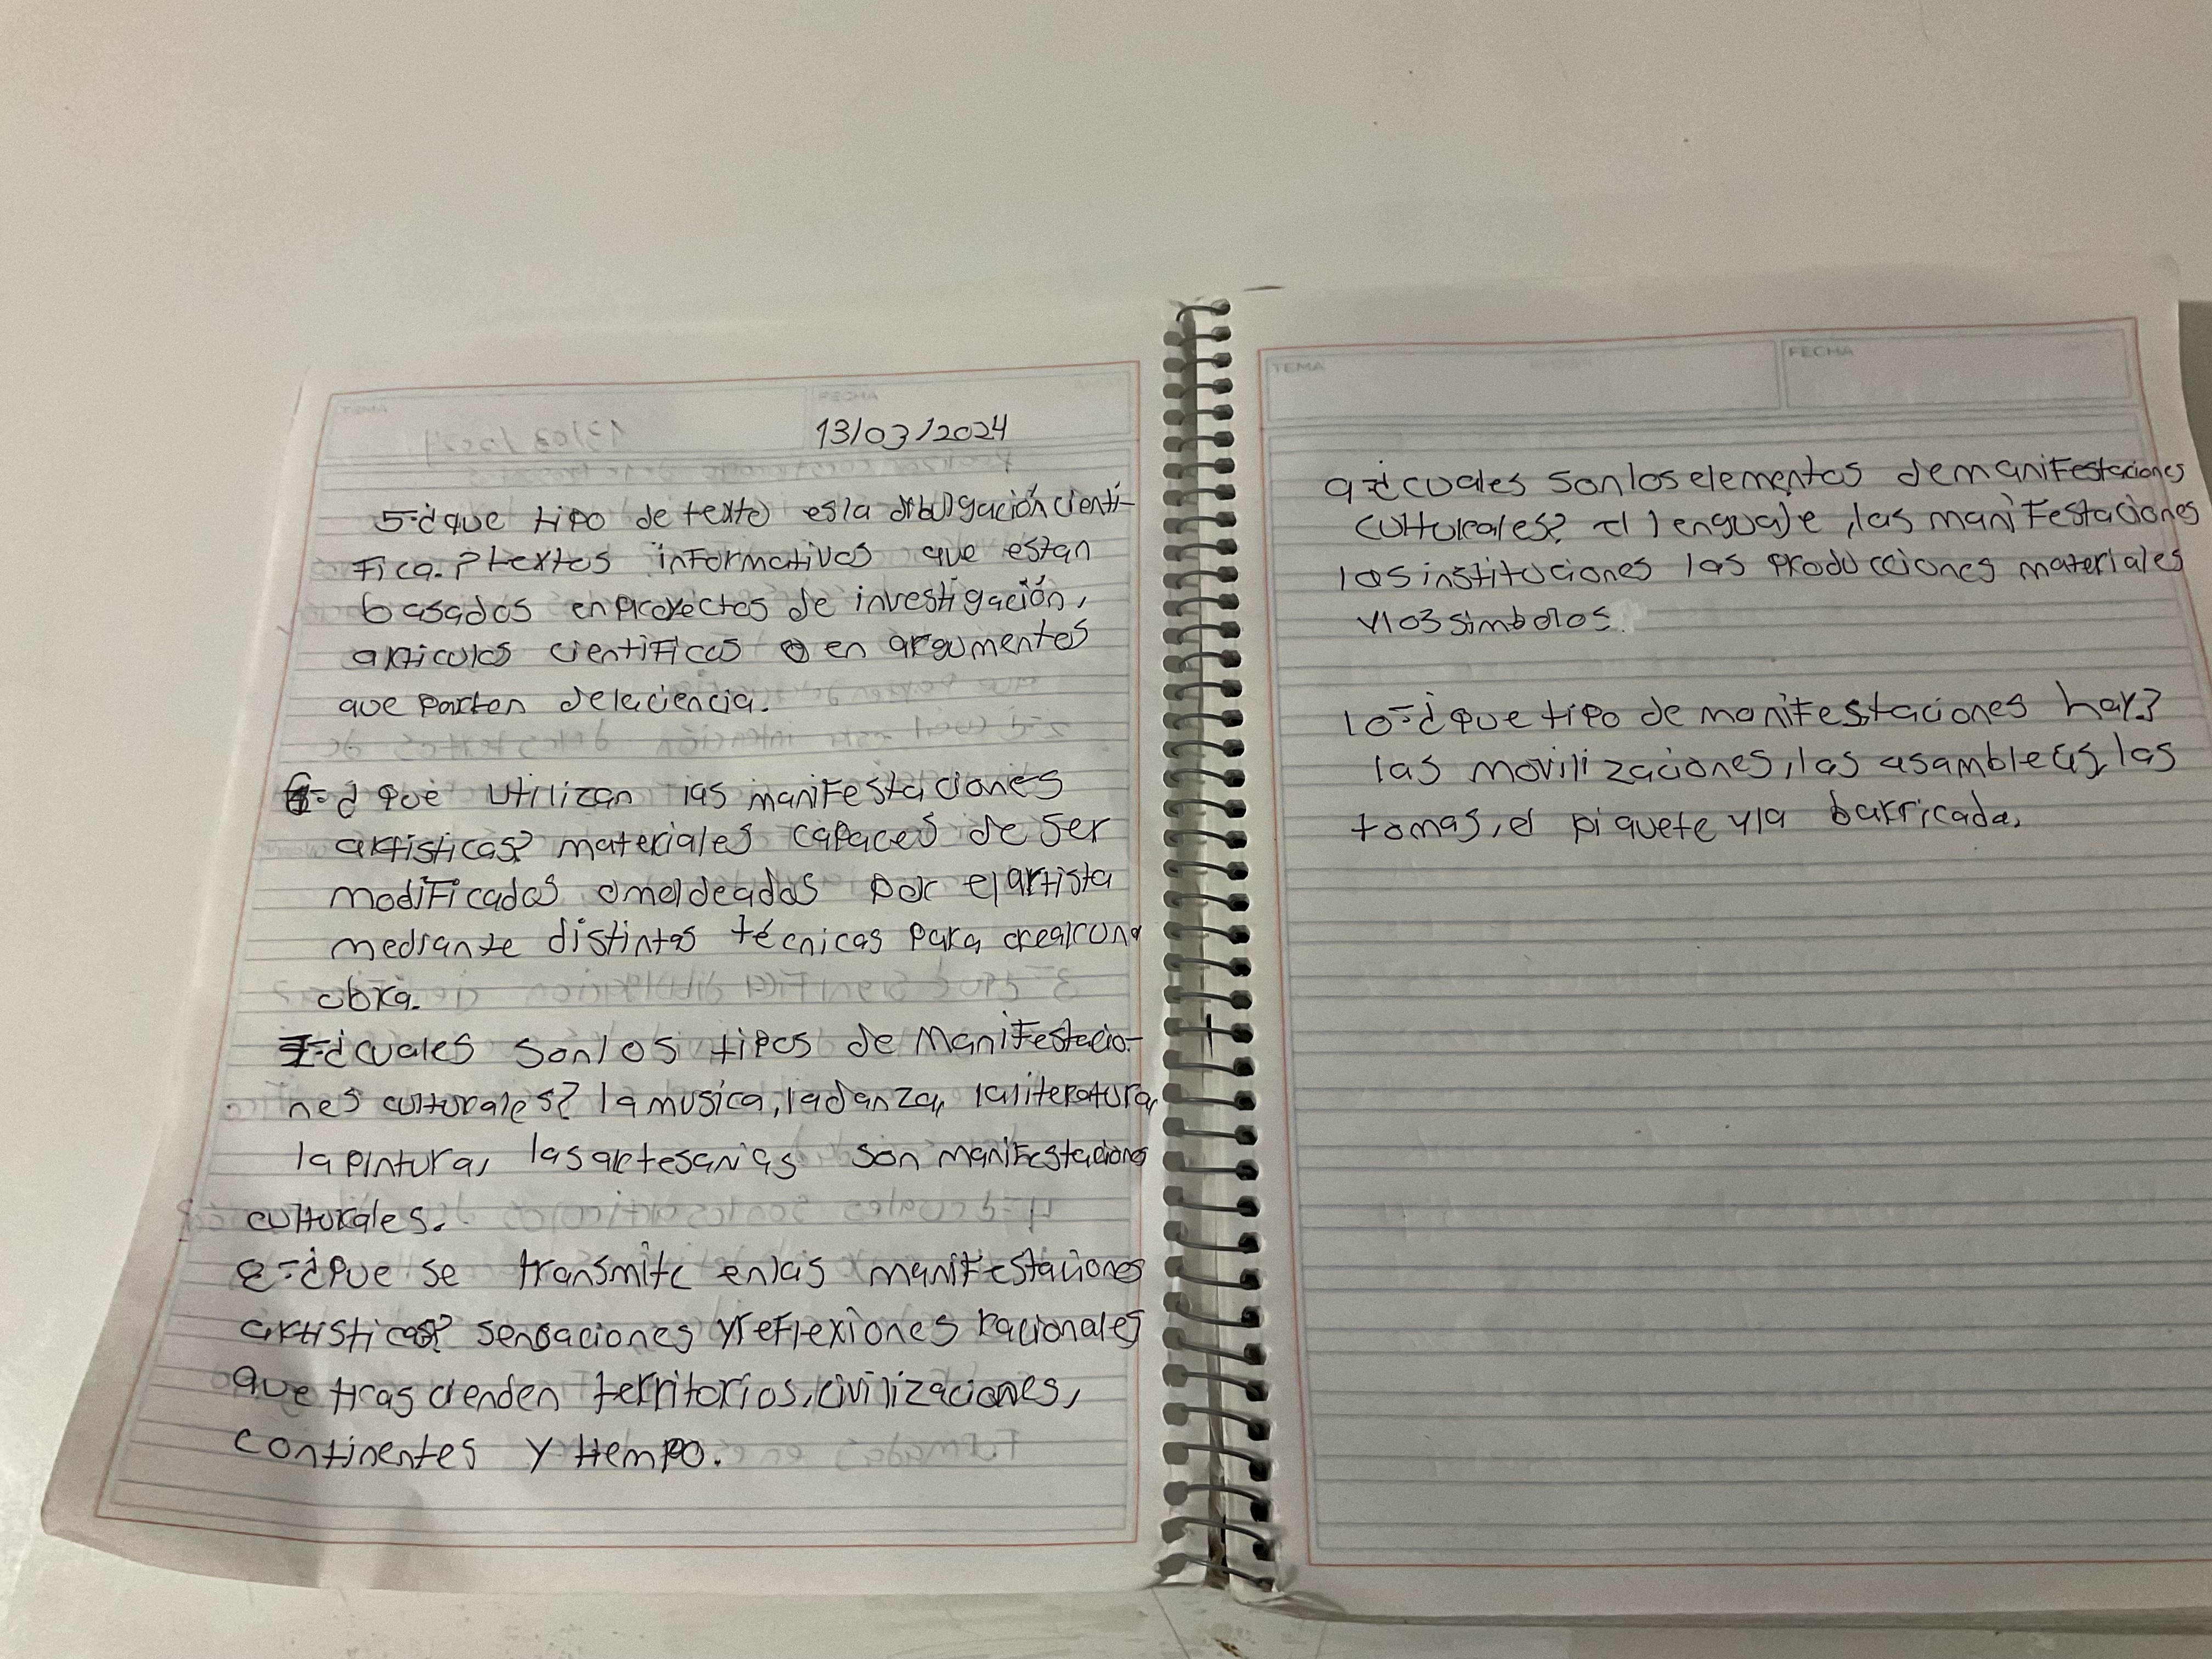 TEMA
FECHA
13/03/2024
5-¿que tipo de texto es la dibulgación cientí-
fica.? textos informativos que estan
basados en proyectos de investigación,
articulos cientificos o en argumentos
que parten de la ciencia.
6-¿que utilizan las manifestaciones
artisticas? materiales capaces de ser
modificados o moldeados por el artista
mediante distintas técnicas para crear una
obra.
7-¿cuales son los tipos de manifestacio-
nes culturales? la musica, la danza, la literatura,
la pintura, las artesanias son manifestaciones
culturales.
8-¿Que se transmite en las manifestaciones
artisticas? sensaciones y reflexiones racionales
que tras cienden territorios, civilizaciones,
continentes y tiempo.
TEMA
FECHA
9-¿cuales son los elementos de manifestaciones
culturales? el lenguaje, las manifestaciones
las instituciones las producciones materiales
y los simbolos.
10-¿que tipo de manifestaciones hay?
las movilizaciones, las asambleas, las
tomas, el piquete y la barricada.